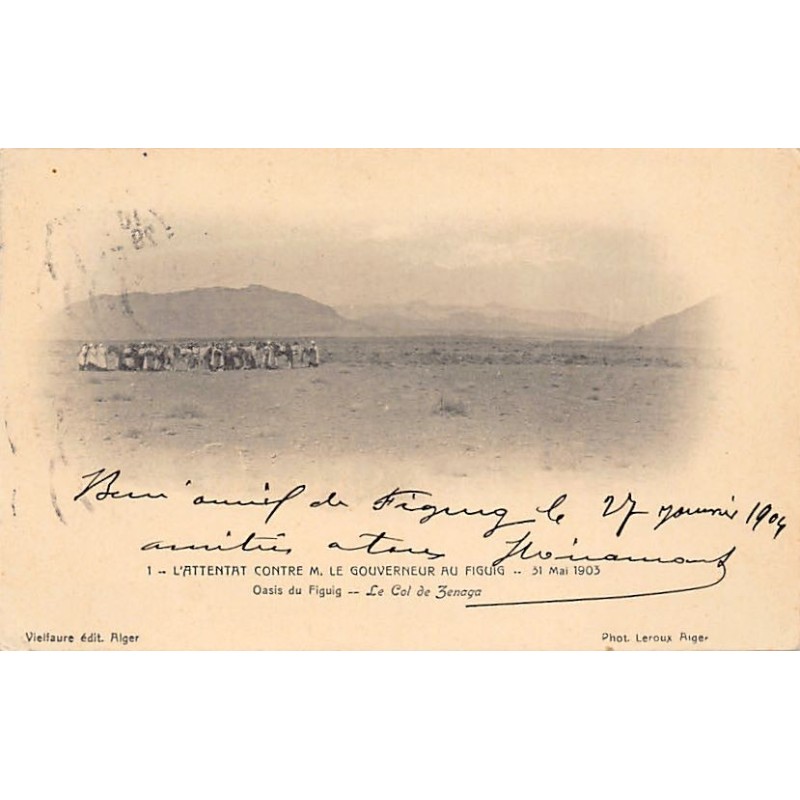 Bon amiel de Figuig le 27 janvier 1904
amitiés a tous
1 -- L'ATTENTAT CONTRE M. LE GOUVERNEUR AU FIGUIG -- 31 Mai 1903
Oasis du Figuig -- Le Col de Zenaga
Vielfaure édit. Alger
Phot. Leroux Alger